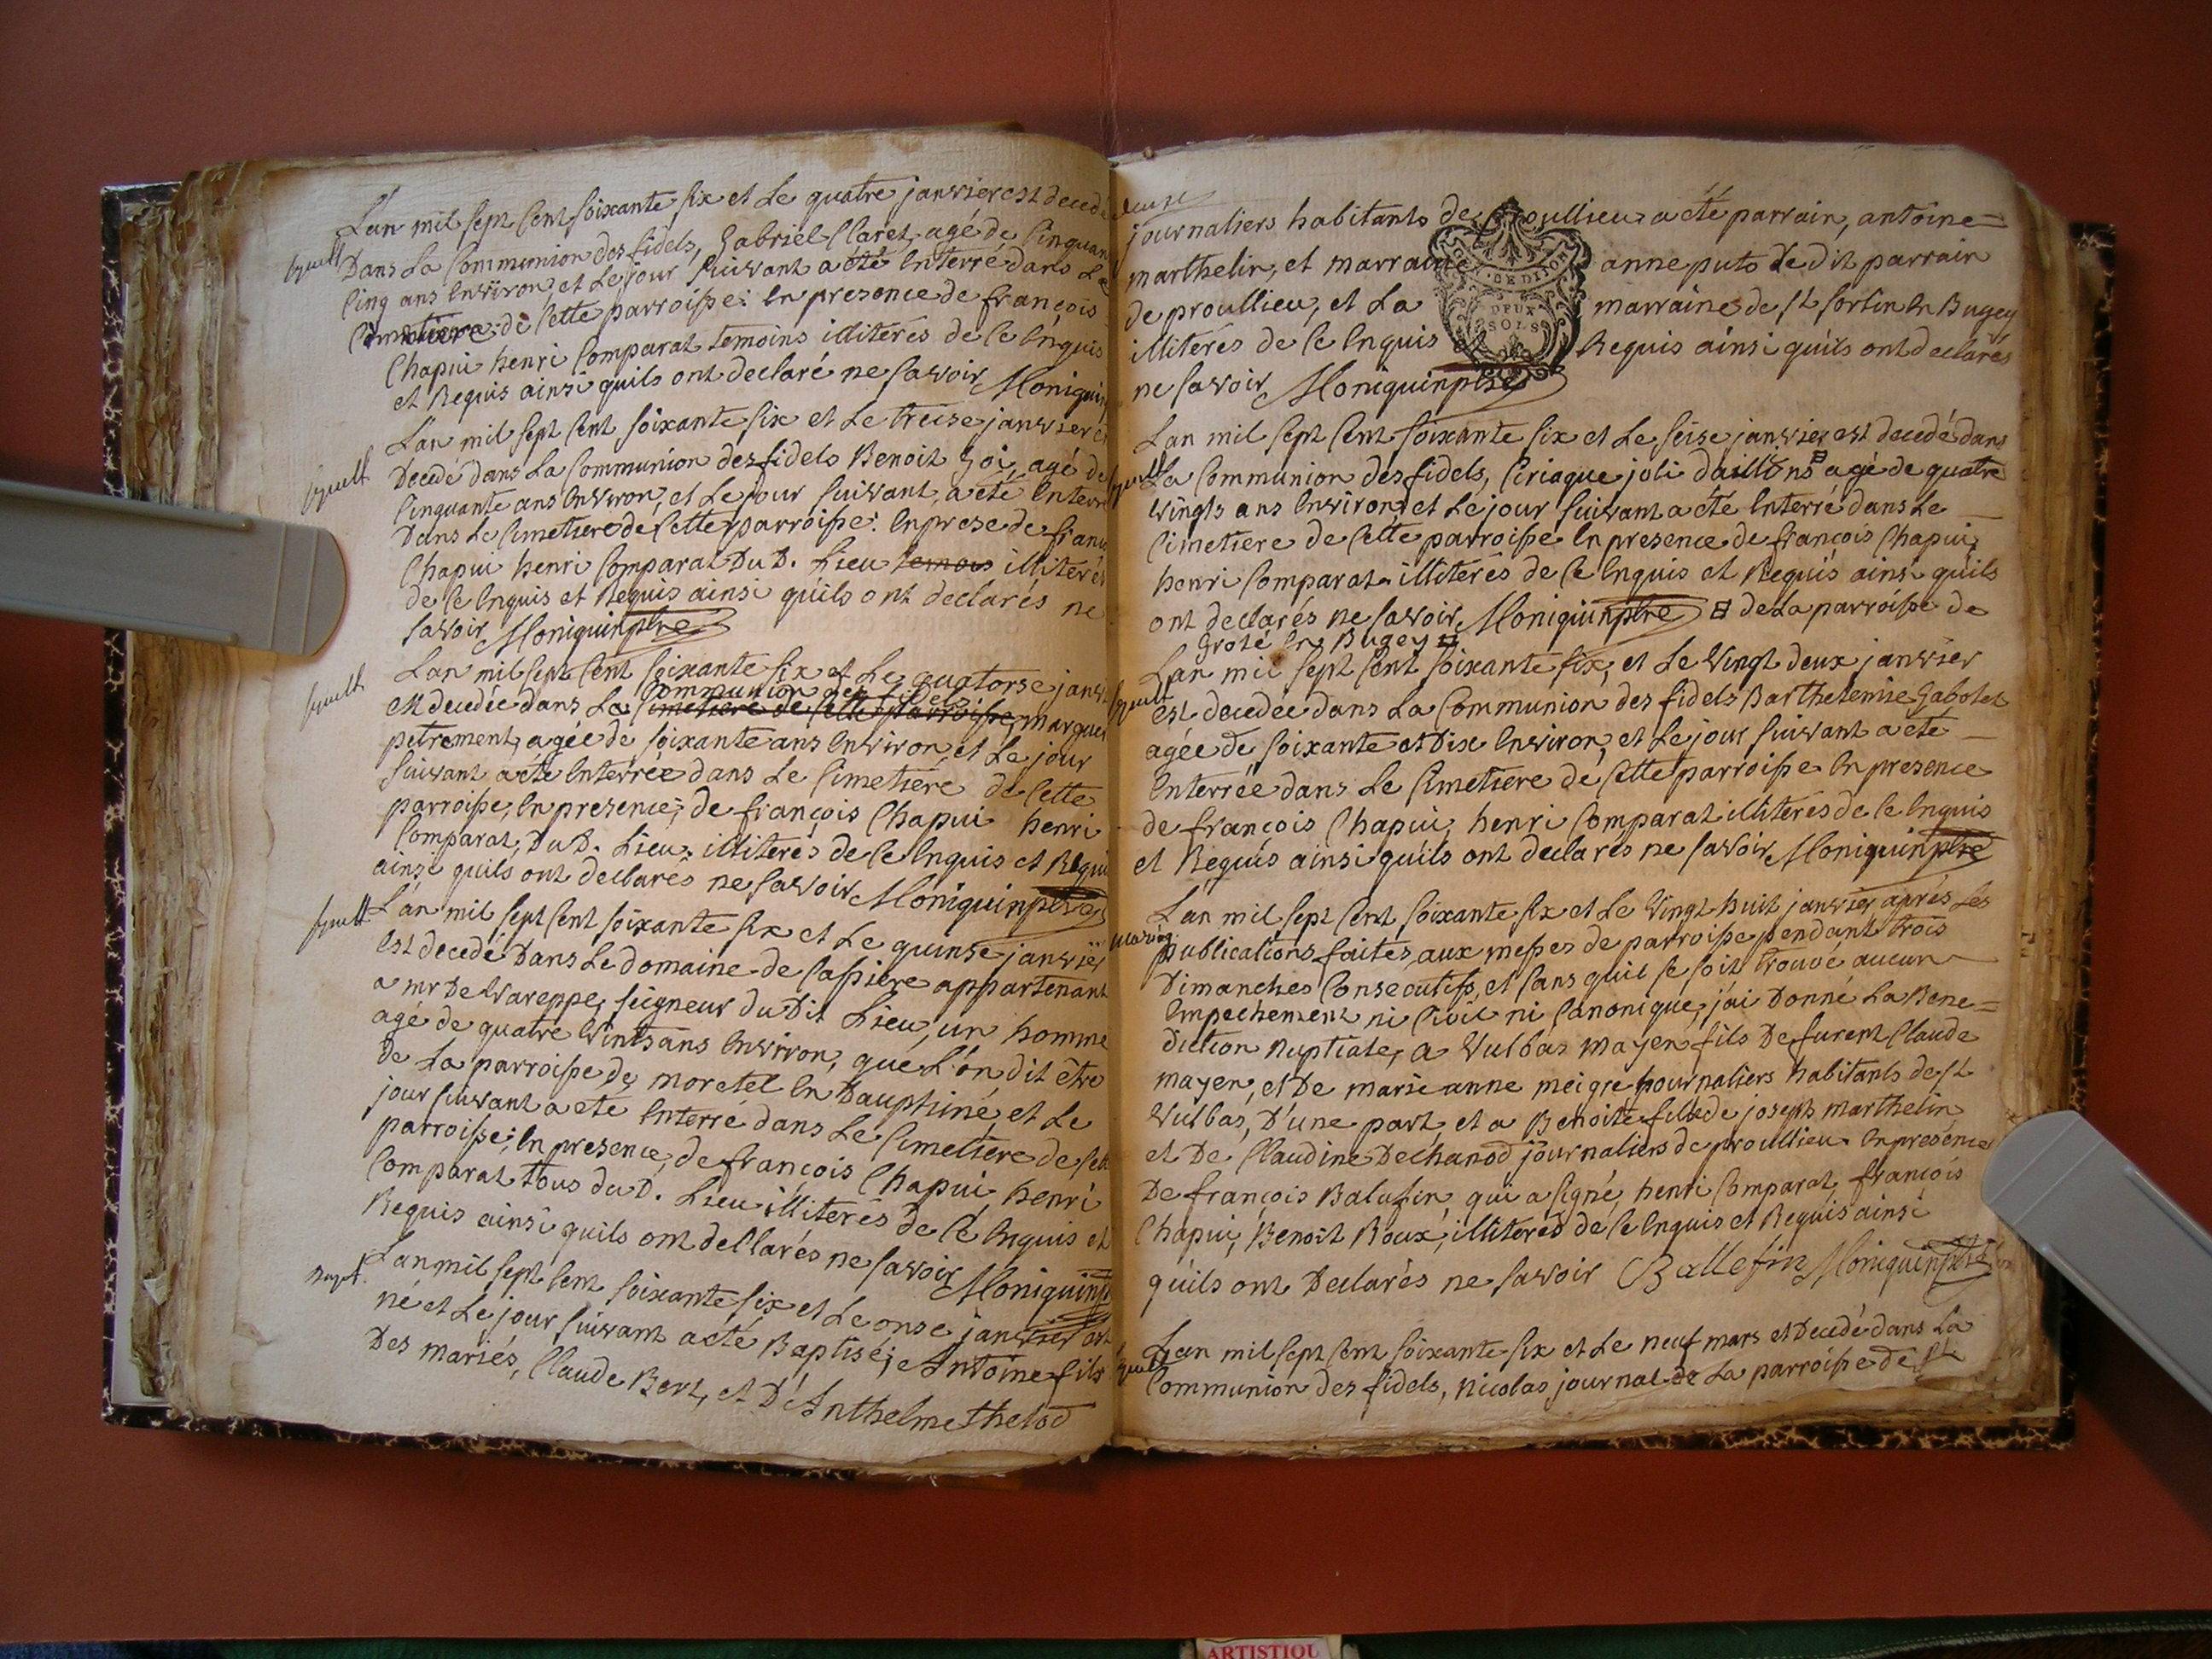 L'an mil sept Cent soixante six et Le quatre janvier est decedé
Dans La Communion des fidels, Gabriel Claret, agé de Cinquan
Cinq ans Environ, et Le jour suivant a été Enterré dans Le
Cimetiere de Cette parroisse: En presence de françois
Chapui henri Comparat temoins illiterés de Ce Enquis
et Requis ainsi quils ont declaré ne savoir Moniquin
L'an mil sept Cent soixante six et Le treise janvier es
Decedé dans La Communion des fidels Benoit Goi, agé de
Cinquante ans Environ, et Le jour suivant, a été Enterré
Dans Le Cimetiere de Cette parroisse: En prese de franc
Chapui henri Comparat Du D. Lieu temois illiterés
de Ce Enquis et Requis ainsi quils ont declarés ne
savoir Moniquin ptre
L'an mil sept Cent soixante six et Le quatorse janvi
Communion des fidels
est decedée dans La Cimetiere de Cette parroisse, margue
petrement, agée de soixante ans Environ, et Le jour
suivant a été Enterrée dans Le Cimetiere de Cette
parroisse, En presence, de françois Chapui henri
Comparat, Du D. Lieu, illiterés de Ce Enquis et Requi
ainsi quils ont declarés ne savoir Moniquin ptre
L'an mil sept Cent soixante six et Le quinse janvier
est decedé Dans Le domaine de Cassiere appartenant
a mr De Vareppe, seigneur du Dit Lieu, un homme
agé de quatre Vints ans Environ, que L'on dit être
de La parroisse de moretel En Dauphiné, et Le
jour suivant a été Enterré dans Le Cimetiere de Cett
parroisse; En presence, de françois Chapui, henri
Comparat tous du D. Lieu illiterés de Ce Enquis et
Requis ainsi quils ont declarés ne savoir Moniquin p
Bapt.
L'an mil sept Cent soixante six et Le onse janvier est
né et Le jour suivant a été Baptisé; Antoine fils
Des mariés, Claude Bert, et D'Anthelme Thelod
journaliers habitants de proullieu a été parrain, antoine=
marthelin, et marraine anne puto Le dit parrain
de proullieu, et La marraine de St sorlin En Bugey
illiterés de Ce Enquis et Requis ainsi quils ont declarés
ne savoir Moniquin ptre
DE DIJON
DEUX
SOLS
L'an mil sept Cent soixante six et Le seise janvier est decedé dans
La Communion des fidels, Ciriaque joli daillons agé de quatre
Vingts ans Environ, et Le jour suivant a été Enterré dans Le
Cimetiere de Cette parroisse En presence de françois Chapui,
henri Comparat illiterés de Ce Enquis et Requis ainsi quils
ont declarés ne savoir Moniquin ptre de La parroisse de
Grolé En Bugey
L'an mil sept Cent soixante six, et Le Vingt deux janvier
est decedée dans La Communion des fidels Barthelemie Gabolet
agée de soixante et Dix Environ, et Le jour suivant a été
Enterrée dans Le Cimetiere de Cette parroisse En presence
de françois Chapui, henri Comparat illiterés de Ce Enquis
et Requis ainsi quils ont declarés ne savoir Moniquin ptre
mariag.
L'an mil sept Cent soixante six et Le Vingt huit janvier aprés Les
publications faites, aux messes de parroisse pendant trois
Dimanches Consecutifs, et sans quil se soit trouvé aucun
Empechement ni Civil ni Canonique, j'ai Donné La Bene=
diction Nuptiale, a Vulbas mayen fils De furent Claude
mayen, et De marie anne meigre journaliers habitants de St
Vulbas, D'une part, et a Benoite fille de joseph marthelin
et De Claudine Dechanod journaliers de proullieu En presence
De françois Balufin, qui a signé, henri Comparat, françois
Chapui, Benoit Roux, illiterés de Ce Enquis et Requis ainsi
quils ont Declarés ne savoir Ballefin Moniquin ptre
L'an mil sept Cent soixante six et Le neuf mars et Decedé dans La
Communion des fidels, Nicolas journal de La parroisse de St
ARTISTIQU